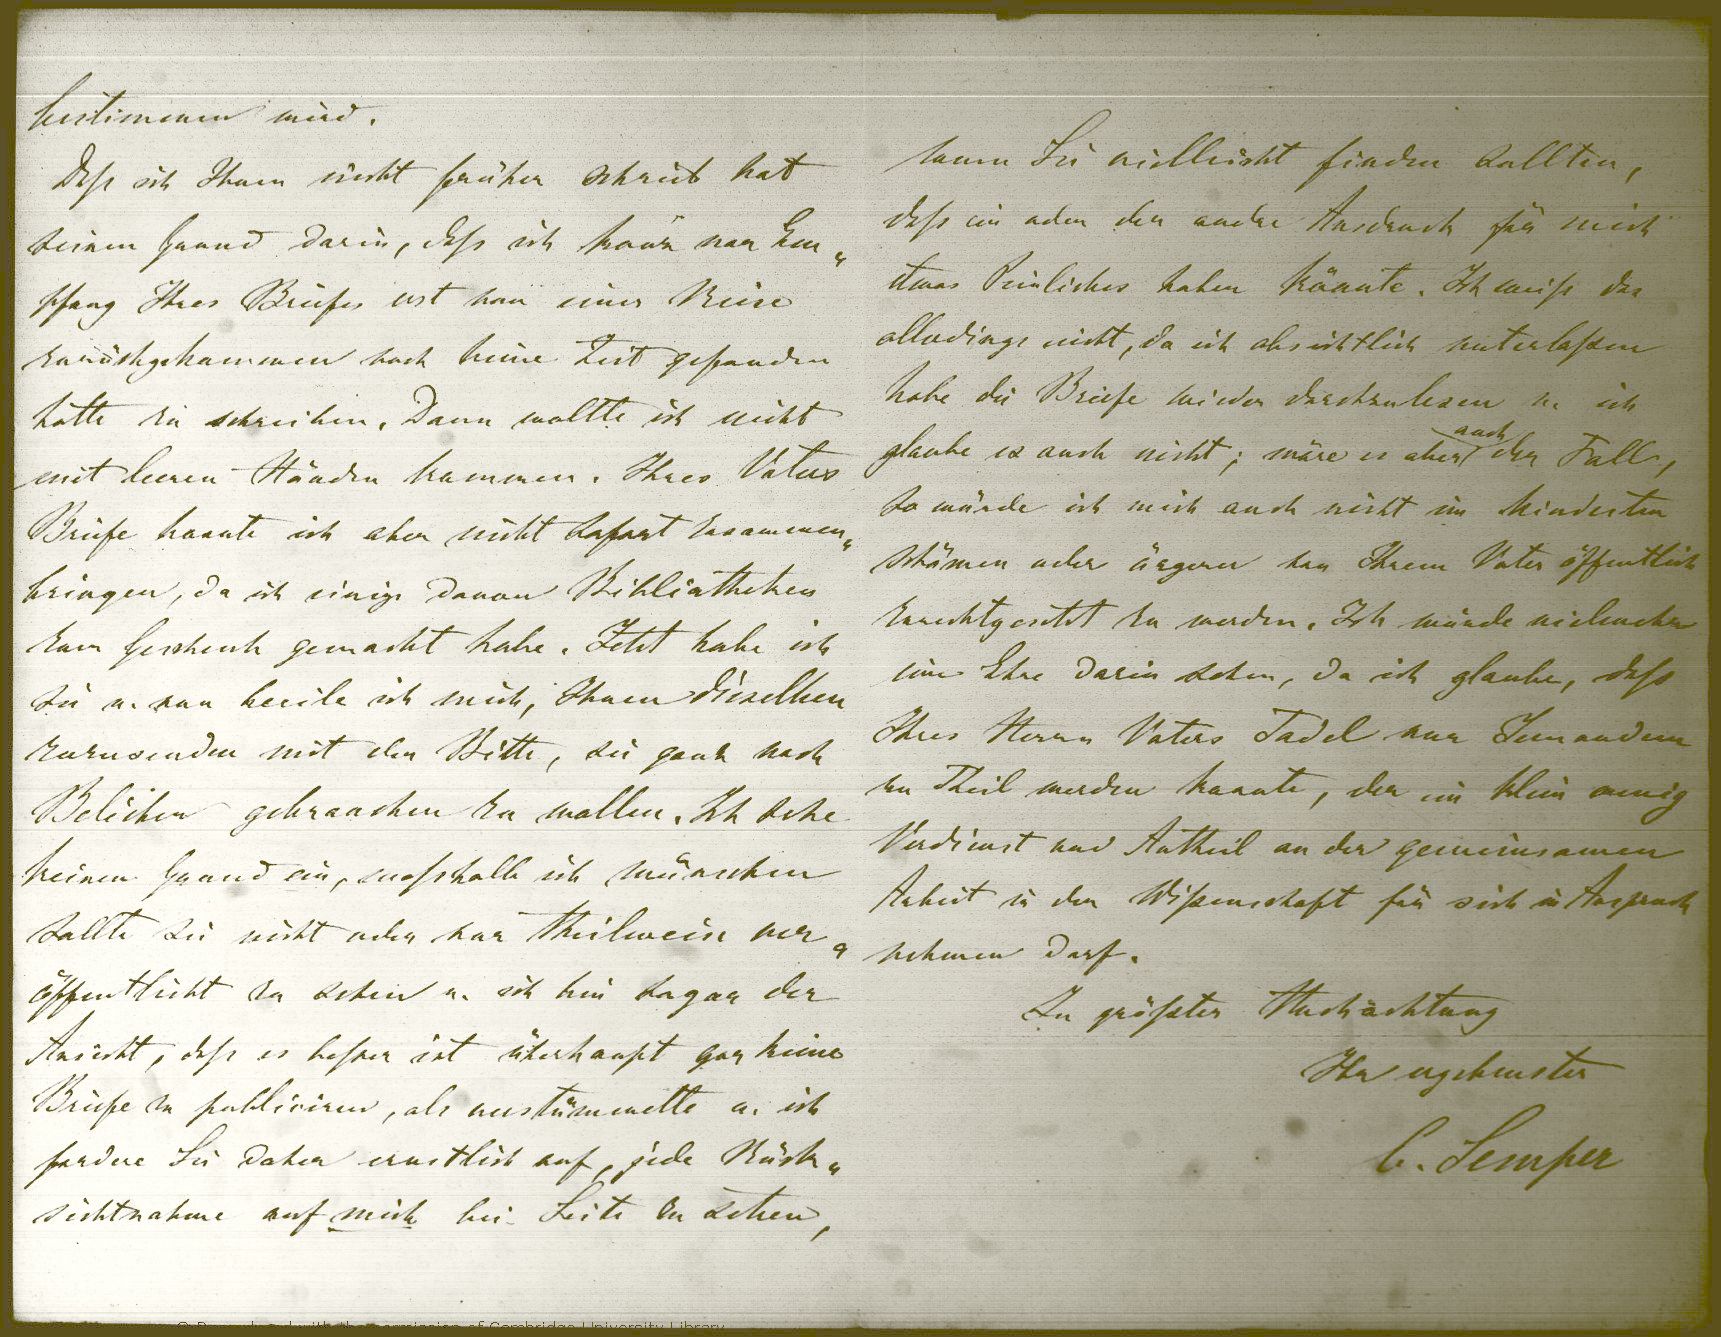 bestimmen wird.
Daß ich Ihnen nicht früher schrieb hat
seinen Grund darin, daß ich kaum nur Em„
pfang Ihres Briefes erst von einer Reise
zurückgekommen noch keine Zeit gefunden
hatte zu schreiben. Dann wollte ich nicht
mit leeren Händen kommen. Ihres Vaters
Briefe konnte ich aber nicht sofort zusammen„
bringen, da ich einige davon Bibliotheken
zum Geschenk gemacht habe. Jetzt habe ich
sie u. nun beeile ich mich, Ihnen dieselben
zuzusenden mit der Bitte, sie ganz nach
Belieben gebrauchen zu wollen. Ich sehe
keinen Grund ein, weßhalb ich wünschen
sollte sie nicht oder nur theilweise ver„
öffentlicht zu sehen u. ich bin sogar der
Ansicht, daß es beßer ist überhaupt gar keine
Briefe zu publiciren, als verstümmelte u. ich
fordere Sie daher ernstlich auf, jede Rück„
sichtnahme auf mich bei Seite zu setzen,
wenn Sie vielleicht finden sollten,
daß ein oder der andre Ausdruck für mich
etwas Peinliches haben könnte. Ich weiß das
allerdings nicht, da ich absichtlich unterlaßen
habe die Briefe wieder durchzulesen u. ich
glaube es auch nicht; wäre es aber auch der Fall,
so würde ich mich auch nicht im Mindesten
schämen oder ärgern von Ihrem Vater öffentlich
zurechtgesetzt zu werden. Ich würde vielmehr
eine Ehre darin sehen, da ich glaube, daß
Ihres Herrn Vaters Tadel nur Jemandem
zu Theil werden konnte, der ein klein wenig
Verdienst und Antheil an der gemeinsamen
Arbeit in der Wißenschaft für sich in Anspruch
nehmen darf.
In größter Hochachtung
Ihr ergebenster
C. Semper
with the permission of Cambridge University Library